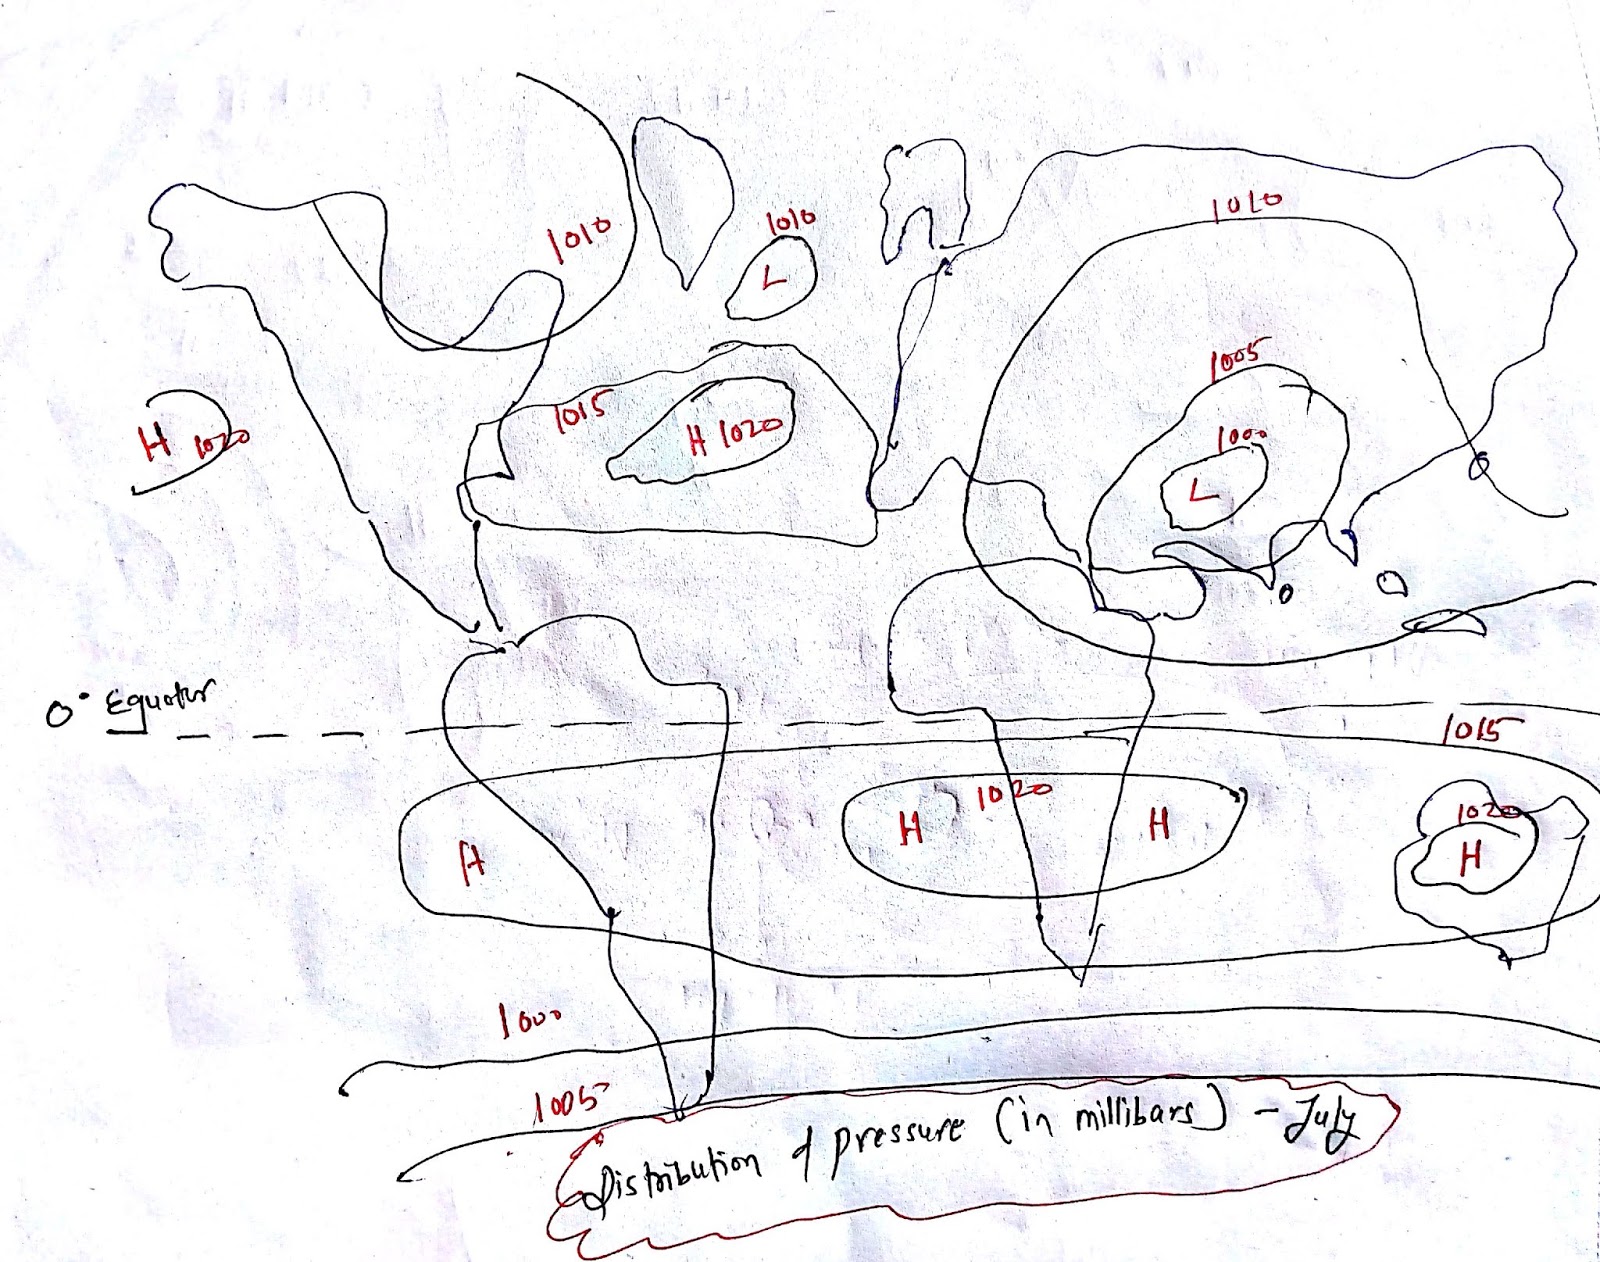 1010
1010
1010
L
1005
1015
H 1020
H 1020
1000
L
0° Equator
1015
1020
H
H
H
1020
H
1000
1005
Distribution of pressure (in millibars) - July